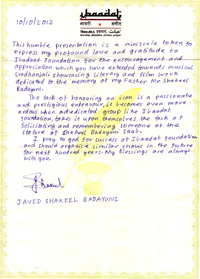 ibaadat
10/10/2012
This humble presentation is a miniscule token to
express my profound love and gratitude to
Ibadaat Foundation for the encouragement and
appreciation which you have extended towards musical
credentials showcasing Literary and film work
dedicated to the memory of my Father Mr Shakeel
Badayuni.
The task of honouring an icon is a passionate
and prestigious endeavour, it becomes even more
arduous when a dedicated group like Ibadat
Foundation, takes it upon themselves the task of
felicitating and remembering someone of the
stature of Shakeel Badayuni Saab.
I pray to god for success of Ibadat foundation
and should organise similar shows in the future
for next hundred years. My blessings are always
with you.
JAVED SHAKEEL BADAYUNI